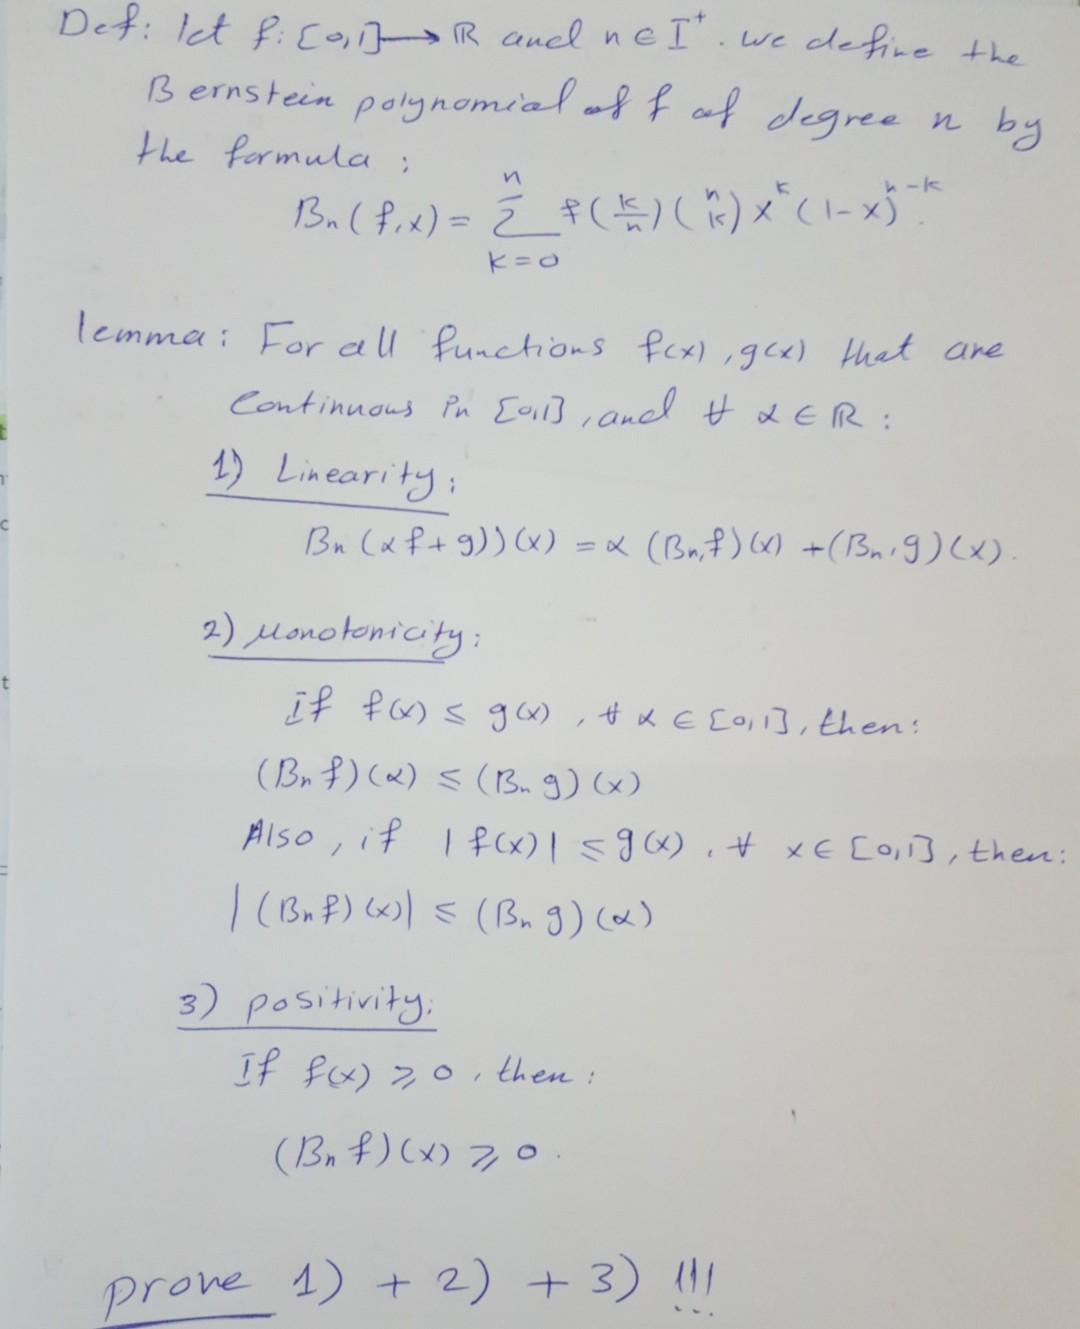 Def: let f: [0,1] → ℝ and n ∈ I⁺. we define the
Bernstein polynomial of f of degree n by
the formula ;
Bn(f,x) = Σ_{k=0}^{n} f(k/n) (n k) x^k (1-x)^{n-k}.
lemma: For all functions f(x), g(x) that are
Continuous in [0,1], and ∀ α ∈ ℝ :
1) Linearity;
Bn (αf+g))(x) = α (Bn,f)(x) + (Bn,g)(x).
2) Monotonicity;
if f(x) ≤ g(x), ∀ α ∈ [0,1], then:
(Bn f)(α) ≤ (Bn g)(x)
Also, if |f(x)| ≤ g(x), ∀ x ∈ [0,1], then:
|(Bn f)(x)| ≤ (Bn g)(α)
3) positivity;
If f(x) ≥ 0, then:
(Bn f)(x) ≥ 0.
prove 1) + 2) + 3) !!!